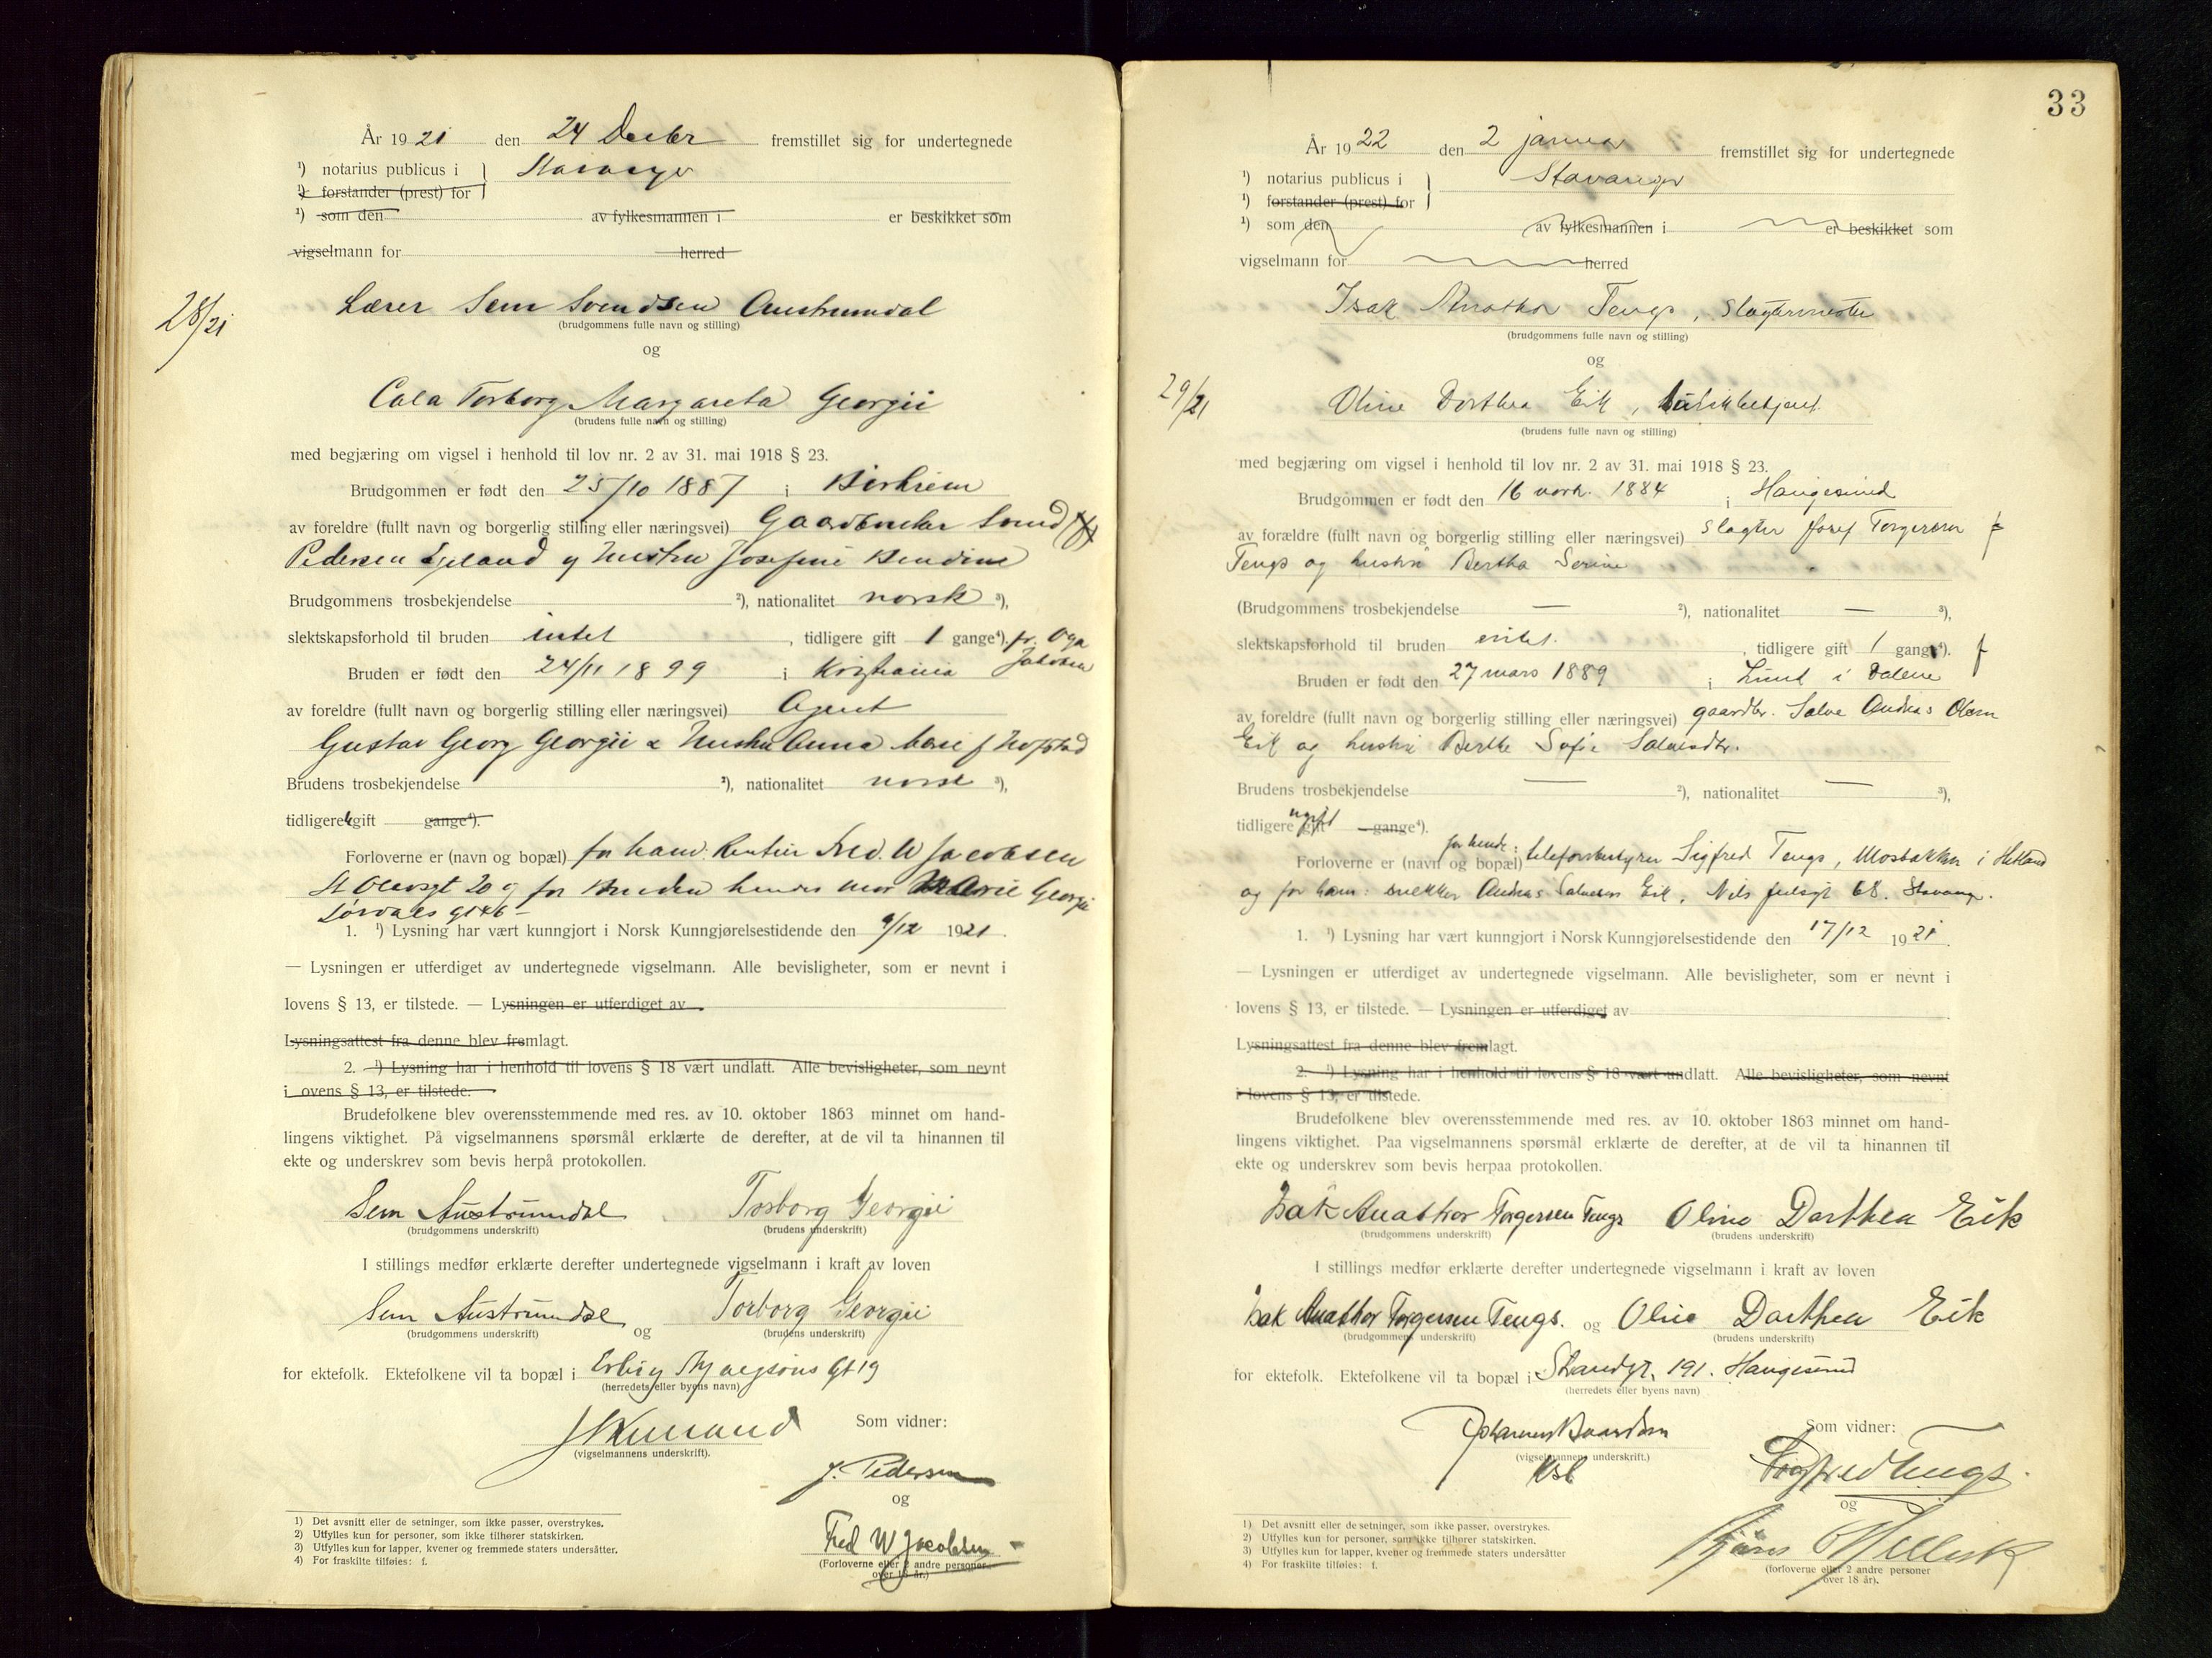 År 1921 den 24 Decbr fremstillet sig for undertegnede
¹) notarius publicus i } Stavanger
¹) forstander (prest) for
¹) som den av fylkesmannen i er beskikket som
vigselmann for herred
28/21
Lærer Sem Svendsen Austrumdal
(brudgommens fulle navn og stilling)
og
Cala Torborg Margareta Georgii
(brudens fulle navn og stilling)
med begjæring om vigsel i henhold til lov nr. 2 av 31. mai 1918 § 23.
Brudgommen er født den 25/10 1887 i Birkrem
av foreldre (fullt navn og borgerlig stilling eller næringsvei) Gaardbruker Svend
Pedersen Egeland og Hustru Josefine Bendine
Brudgommens trosbekjendelse ²), nationalitet norsk ³),
slektskapsforhold til bruden intet, tidligere gift 1 gange⁴). fr. Olga
Jakobsen
Bruden er født den 24/11 1899 i Kristiania
av foreldre (fullt navn og borgerlig stilling eller næringsvei) Agent
Gustav Georg Georgii & Hustru Anna Marie f Hopstad
Brudens trosbekjendelse ²), nationalitet norsk ³),
tidligere gift gange⁴).
Forloverne er (navn og bopæl) for ham Rentier Fred. W Jacobsen
St Olavsgt 20 og for Bruden hendes mor Marie Georgii
1. ¹) Lysning har vært kunngjort i Norsk Kunngjørelsestidende den 9/12 1921.
— Lysningen er utferdiget av undertegnede vigselmann. Alle bevisligheter, som er nevnt i
lovens § 13, er tilstede. — Lysningen er utferdiget av
Lysningsattest fra denne blev fremlagt.
2. ¹) Lysning har i henhold til lovens § 18 vært undlatt. Alle bevisligheter, som nevnt
i ovens § 13, er tilstede.
Brudefolkene blev overensstemmende med res. av 10. oktober 1863 minnet om hand-
lingens viktighet. På vigselmannens spørsmål erklærte de derefter, at de vil ta hinannen til
ekte og underskrev som bevis herpå protokollen.
Sem Austrumdal Torborg Georgii
(brudgommens underskrift) (brudens underskrift)
I stillings medfør erklærte derefter undertegnede vigselmann i kraft av loven
Sem Austrumdal og Torborg Georgii
(brudgommens underskrift) (brudens underskrift)
for ektefolk. Ektefolkene vil ta bopæl i Erling Skjalgsøns Gt 19
(herredets eller byens navn)
Som vidner:
(vigselmannens underskrift).
J. Pedersen
og
Fred W Jacobsen
(Forloverne eller 2 andre personer
over 18 år.)
1) Det avsnitt eller de setninger, som ikke passer, overstrykes.
2) Utfylles kun for personer, som ikke tilhører statskirken.
3) Utfylles kun for lapper, kvener og fremmede staters undersåtter.
4) For fraskilte tilføies: f.
33
År 1922 den 2 januar fremstillet sig for undertegnede
¹) notarius publicus i } Stavanger
¹) forstander (prest) for
¹) som den av fylkesmannen i er beskikket som
vigselmann for herred
Isak Anathor Tengs, Slagtermester
(brudgommens fulle navn og stilling)
og
29/21
Oline Dorthea Eik, butikbetjent.
(brudens fulle navn og stilling)
med begjæring om vigsel i henhold til lov nr. 2 av 31. mai 1918 § 23.
Brudgommen er født den 16 novb. 1884 i Haugesund
av forældre (fullt navn og borgerlig stilling eller næringsvei) Slagter Josef Torgersen
Tengs og hustru Bertha Serine
(Brudgommens trosbekjendelse — ²), nationalitet — ³),
slektskapsforhold til bruden intet, tidligere gift 1 gang⁴). f
Bruden er født den 27 mars 1889 i Lund i Dalene
av foreldre (fullt navn og borgerlig stilling eller næringsvei) gaardbr. Salve Andreas Olsen
Eik og hustru Berthe Sofie Salvesdtr.
Brudens trosbekjendelse — ²), nationalitet — ³),
tidligere gift ugift gange⁴).
Forloverne er (navn og bopæl) for hende: telefonbestyrer Sigfred Tengs, Mosbakken i Hetland
og for ham: snekker Andreas Salvesen Eik, Nils Juelsgt 68. Stavanger.
1. ¹) Lysning har vært kunngjort i Norsk Kunngjørelsestidende den 17/12 1921.
— Lysningen er utferdiget av undertegnede vigselmann. Alle bevisligheter, som er nevnt i
lovens § 13, er tilstede. — Lysningen er utferdiget av
Lysningsattest fra denne blev fremlagt.
2. ¹) Lysning har i henhold til lovens § 18 vært undlatt. Alle bevisligheter, som nevnt
i lovens § 13, er tilstede.
Brudefolkene blev overensstemmende med res. av 10. oktober 1863 minnet om hand-
lingens viktighet. Paa vigselmannens spørsmål erklærte de derefter, at de vil ta hinannen til
ekte og underskrev som bevis herpaa protokollen.
Isak Anathor Torgersen Tengs Oline Dorthea Eik
(brudgommens underskrift) (brudens underskrift)
I stillings medfør erklærte derefter undertegnede vigselmann i kraft av loven
Isak Anathor Torgersen Tengs. og Oline Dorthea Eik
(brudgommens underskrift) (brudens underskrift)
for ektefolk. Ektefolkene vil ta bopæl i Strandgt. 191. Haugesund
(herredets eller byens navn)
Som vidner:
Johannes Baardsen
(vigselmannens underskrift.)
Sigfred Tengs.
og
(forloverne eller 2 andre personer
over 18 år).
1) Det avsnitt eller de setninger, som ikke passer, overstrykes.
2) Utfylles kun for personer, som ikke tilhører statskirken.
3) Utfylles kun for lapper, kvener og fremmede staters undersåtter
4) For fraskilte tilføies: f.